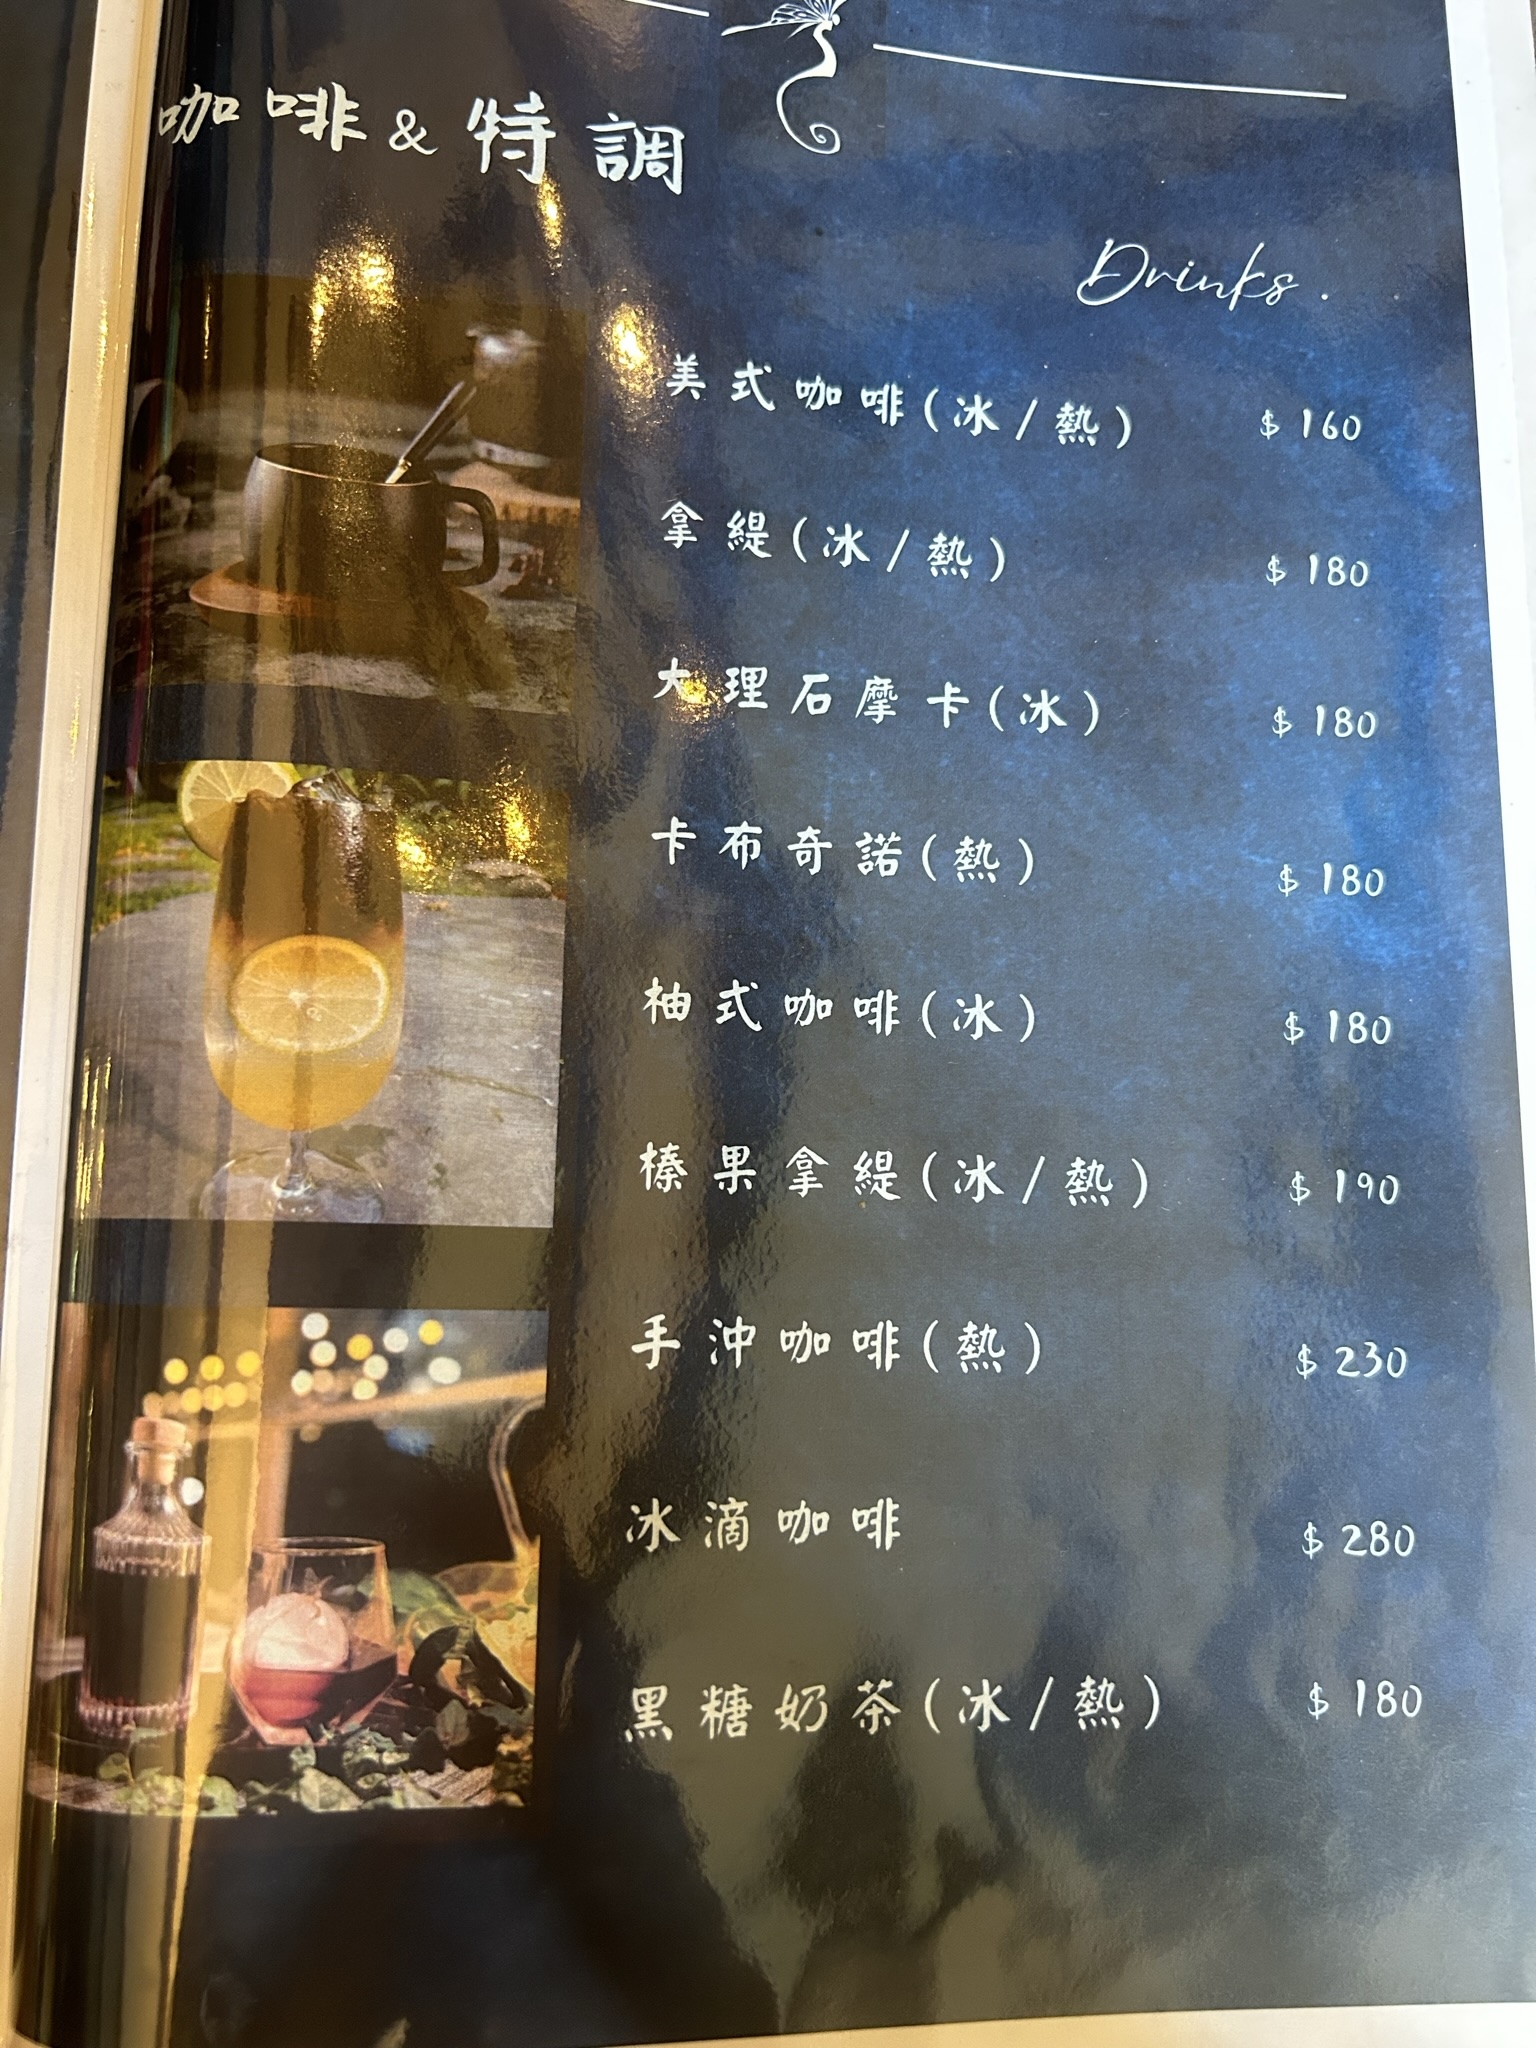 咖啡&特調
Drinks.
美式咖啡(冰/熱) $160
拿緹(冰/熱) $180
大理石摩卡(冰) $180
卡布奇諾(熱) $180
柚式咖啡(冰) $180
榛果拿緹(冰/熱) $190
手沖咖啡(熱) $230
冰滴咖啡 $280
黑糖奶茶(冰/熱) $180